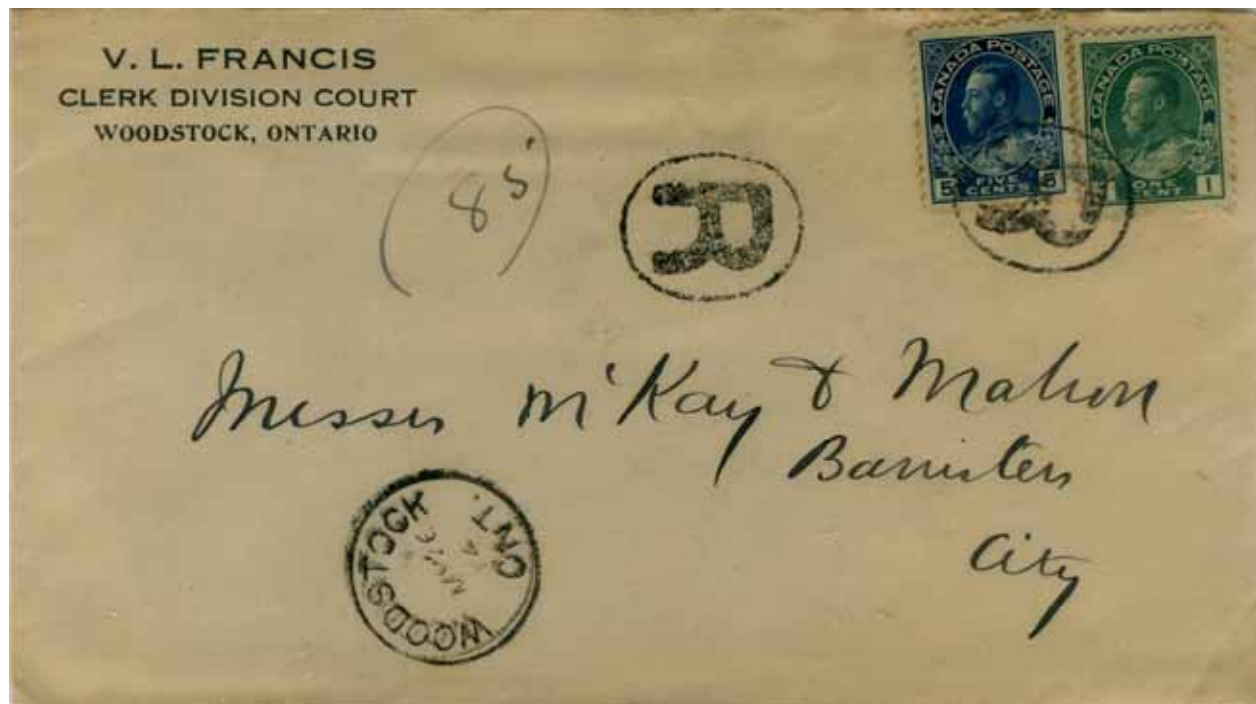 V. L. FRANCIS
CLERK DIVISION COURT
WOODSTOCK, ONTARIO
(85)
R
CANADA POSTAGE
5 FIVE CENTS 5
CANADA POSTAGE
1 ONE CENT 1
R
Messrs McKay & Mahon
Barristers
City
WOODSTOCK
ONT.